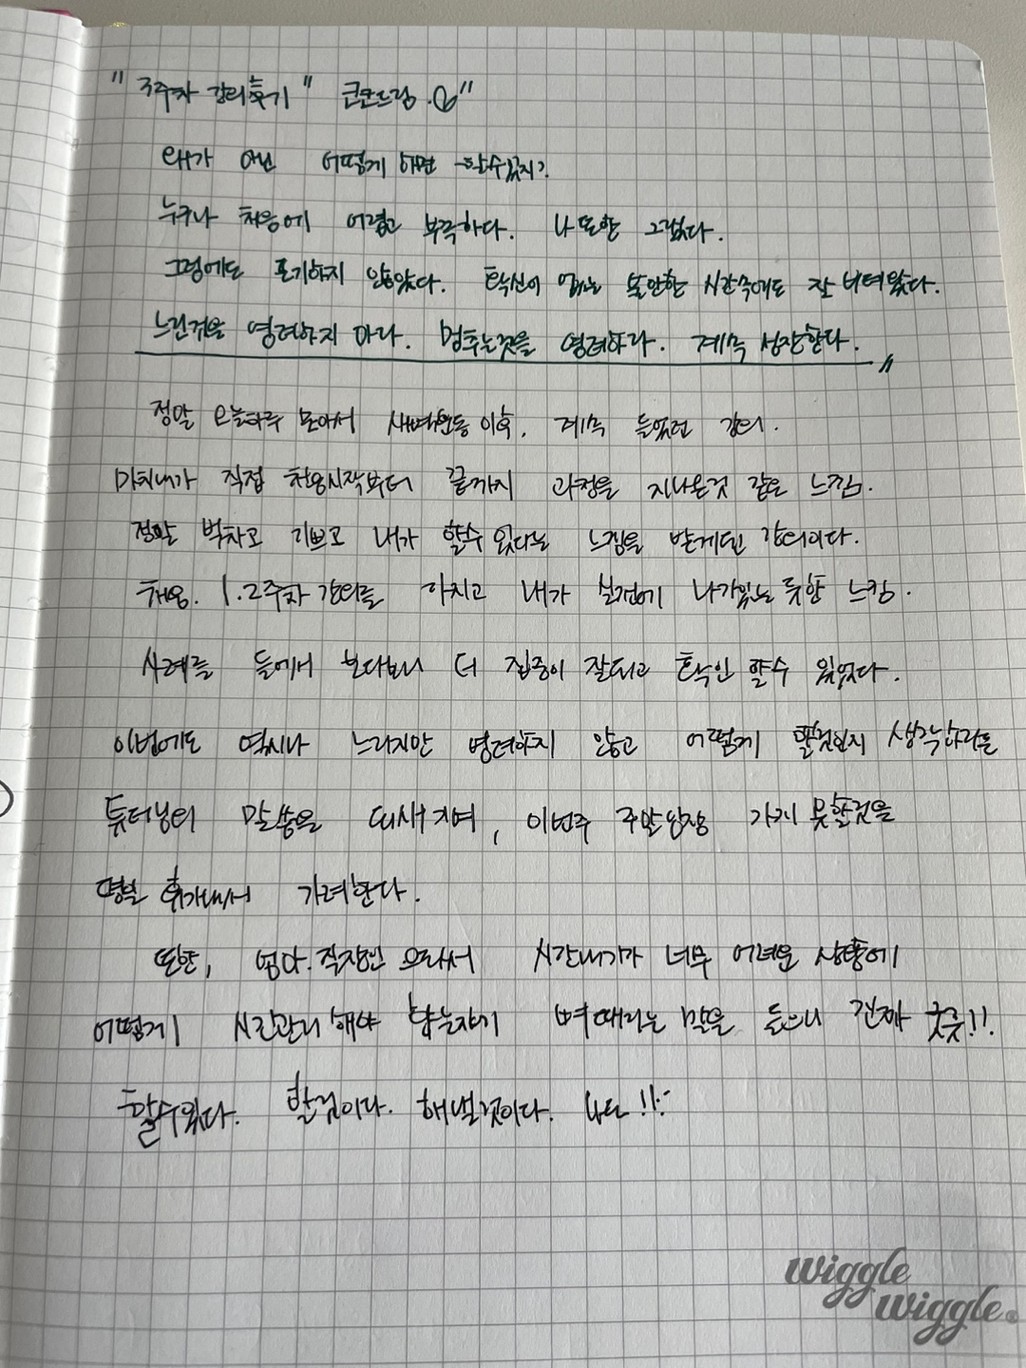 "3주차 강의후기"
왜가 아닌 어떻게 하면 할수있지?
누구나 처음에 어렵고 부족하다. 나 또한 그랬다.
그럼에도 포기하지 않았다. 확신이 없는 불안한 시간속에도 잘 버텨왔다.
느린것을 염려하지 마라. 멈추는것을 염려하라. 계속 성장한다."
정말 오늘하루 몰아서 새벽운동 이후, 계속 들었던 강의.
마치내가 직접 처음시작부터 끝까지 과정을 지나온것 같은 느낌.
정말 벅차고 기쁘고 내가 할수 있다는 느낌을 받게된 강의이다.
처음. 1.2주차 강의를 가지고 내가 실전에 나가있는 듯한 느낌.
사례를 들에서 보다보니 더 집중이 잘되고 확인 할수 있었다.
이번에도 역시나 느리지만 염려하지 않고 어떻게 할것인지 생각하라는
튜터님의 말씀을 되새기며, 이번주 주말임장 가지 못할것을
평일 휴가내서 가려한다.
또한, 엄마.직장인 으로서 시간내기가 너무 어려운 상황에
어떻게 시간관리 해야 하는지 뼈때리는 말을 들으니 진짜 굿굿!!
할수있다. 할것이다. 해낼것이다. 나도!!
wiggle
wiggle.®